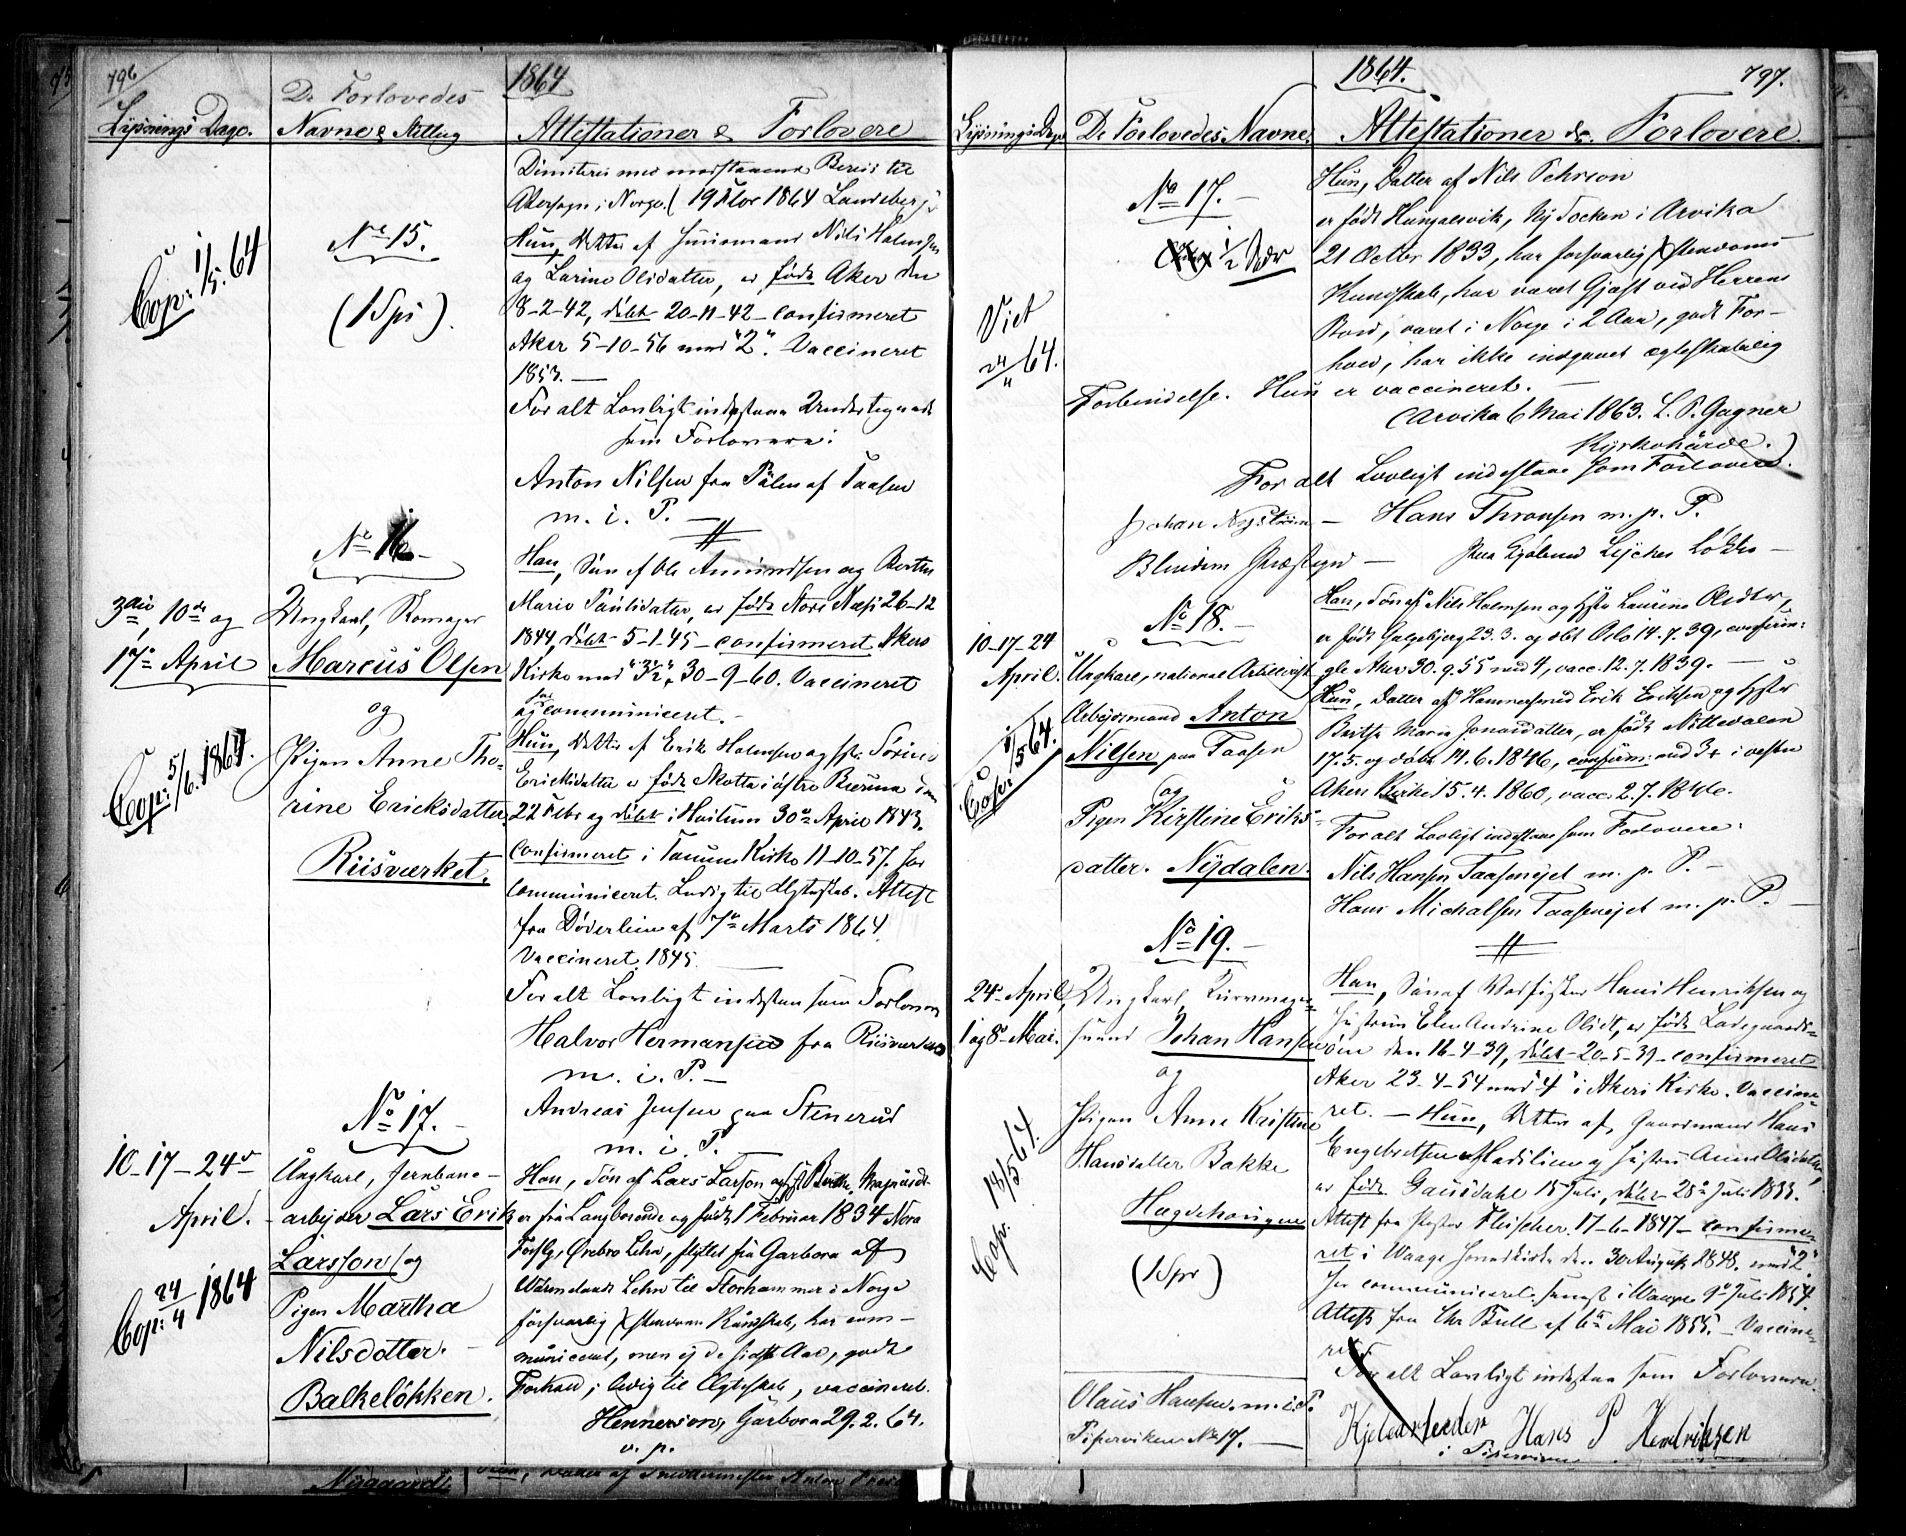 796
1864
De Forlovedes
Lysnings Dage. Navne & Stilling Attestationer & Forlovere
Cop: 1/5. 64
No 15.
(1 Spd).
Dimitteres med modstaaende Bevis til
Akersogn i Norge. (19 1864 Landsberg
Hun, Datter af Huusmand Nils Holmsen
og Larine Olsdatter, er født Aker den
8-2-42, døbt 20-11-42 - confirmeret
Aker 5-10-56 med "2". Vaccineret
1853. —
For alt Lovligt indestaae Undertegnede
som Forlovere:
Anton Nilsen fra Pålen af Taasen
m. i. P. —
3die, 10de og
17de April
Cop: 5/6. 1864.
No 16 —
Ungkarl,
Marcus Olsen
og
Pigen Anne Tho-
rine Ericksdatter,
Riisværket.
Han, Søn af Ole Amundsen og Berthe
Marie Paulsdatter, er født Store Næs 26-12
1844, døbt 5-1-45 - confirmeret Akers
Kirke med "3½", 30-9-60. Vaccineret
og communiceret. —
Hun, Datter af Erik Holmsen og Hst. Torine
Ericksdatter er født i østre Bærum den
22 Febr og døbt i Haslum 30te April 1843.
Confirmeret i Tanum Kirke 11-10-57, har
communiceret. Ledig til Ægteskab. Attest
fra Døderlein af 7de Marts 1864.
Vaccineret 1845 —
For alt Lovligt indestaa som Forlovere
Halvor Hermansen fra Riisværket
m. i. P. —
Andreas Jensen paa Stenerud
m. i. P.
10-17-24de
April.
Cop: 24/4 1864
No 17. —
Ungkarl, Jernbane-
arbejder Lars Erik
Larsson og
Pigen Martha
Nilsdotter. —
Balkeløkken.
Han, Søn af Lars Larson og Hst Britta Magnusdt
er fra Langborende og født 1 Februar 1834 Nora
Forslg, Ørebro Lehn, flyttet fra Garbora af
Wärmelands Lehn til Storhammer i Norge
försvarlig Xstendoms Kundskab, har com-
municeret, men ej de sidste Aar, godt
Forhold; ledig til Ægteskab, vaccineret.
Hennerson, Garbora 29.2.64.
v. p.
1864. 797.
Lysnings Dage De Forlovedes Navne. Attestationer & Forlovere.
Viet
24/4 64.
No 17. —
Hun, Datter af Nils Pehrson
er født Hungalsvik, Ny Socken i Arvika
21 Octbr 1833, har forsvarlig Xstendoms
Kundskab, har været Gjæst ved Herrens
Bord, været i Norge i 2 Aar, godt For-
hold, har ikke indgaaet ægteskabelig
Forbindelse. Hun er vaccineret. —
(Arvika 6 Mai 1863. L. P. Gagner
Kyrkohärde.)
For alt Lovligt indestaae som Forlovere.
Johan Nystrøm — Hans Thronsen m. p. P.
Blindern Præstegd — Løkke —
10-17-24
April.
Cop: 1/5 64.
No 18. —
Ungkarl,
Arbejdsmand Anton
Nilsen paa Taasen
og
Pigen Kirstine Eriks-
datter. Nydalen.
Han, Søn af Nils Holmsen og Hst Laurine Olsdtr,
er født Galgebjerg 23.3. og døbt Oslo 14.7.39, confirm:
gle Aker 30.9.55 med 4, vacc. 12.7.1839. —
Hun, Datter af Hammersmed Erik Eriksen og Hstr
Berthe Marie Jonasdatter, er født Nittedalen
17.5. og døbt 14.6.1846, confirm: med 3+ i vestre
Akers Kirke 15.4.1860, vacc. 2.7.1846.
For alt Lovligt indestaae som Forlovere:
Nils Hansen Taasenejet m. p. P. —
Hans Michalsen Taasenejet m. p. P. —
24 April,
1 og 8 Mai.
Cop. 18/5 64.
No 19. —
Ungkarl, Kurvmager-
svend Johan Hansen
og
Pigen Anne Kristine
Hansdatter Bakke
Hægdehaugen
(1 Spd)
Olaus Hansen. m. i. P.
Piperviken No 17. —
Han, Søn af Hans Henriksen og
Hustru Elen Andrine Olsdt, er født Ladegaards-
øen den 16-4-39, døbt 20-5-39 - confirmeret
Aker 23-4-54 med "4" i Akers Kirke. Vaccine-
ret. — Hun, Datter af Gaardmand Hans
Engebretsen og Hustru Anne Olsdatter,
er født Gausdahl 15 Juli, døbt 28de Juli 1833.
Attest fra Pastor Fleischer 17-6-1847 - confirme-
ret i Waage Hovedkirke den 30 August 1848. med "2".
Har communiceret senest i Waage 9de Juli 1854.
Attest fra Chr Bull af 6te Mai 1855. — Vaccine-
ret.
For alt Lovligt indestaa som Forlovere.
Hans P Hendriksen
i Pipervigen